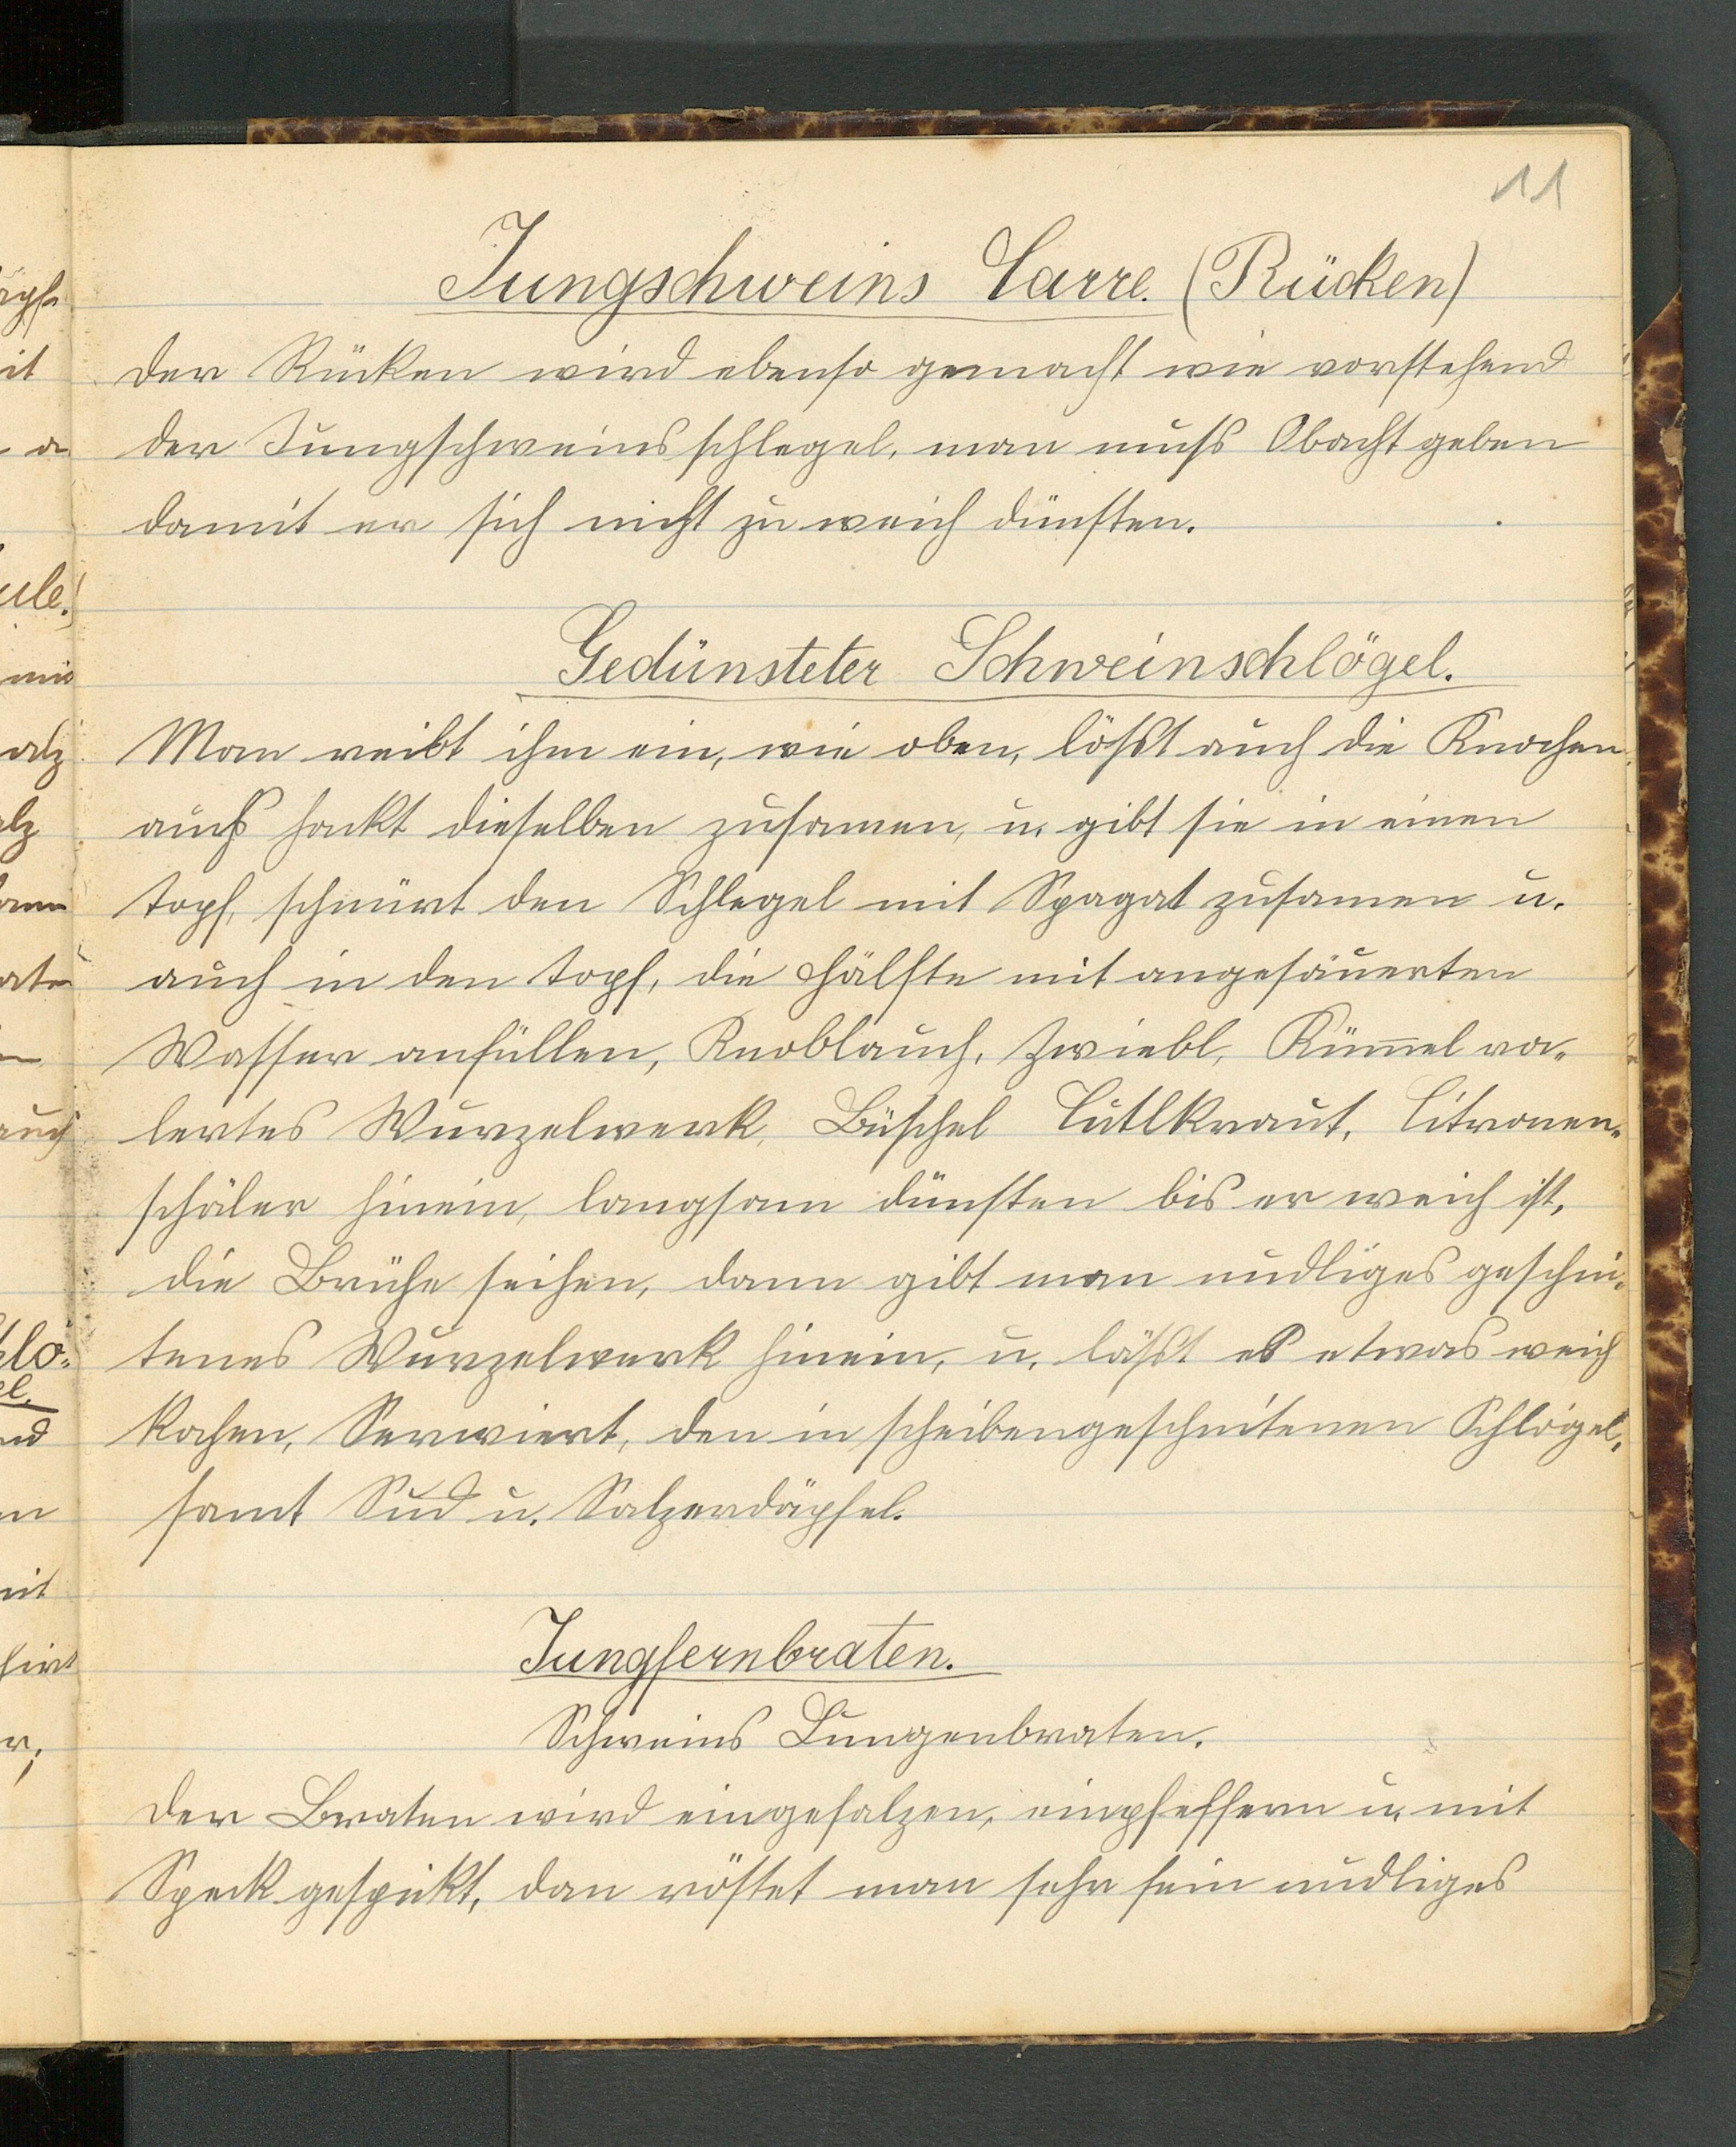 11
Jungschweins Carre. (Rücken)
Der Rücken wird ebenso gemacht wie vorstehend
der Jungschweinsschlegel, man muss Obacht geben
damit er sich nicht zu weich dünsten.
Gedünsteter Schweinschlögel.
Man reibt ihm ein, wie oben, lößt auch die Knochen
aus hackt dieselben zusamen, u. gibt sie in einen
Topf, schnürt den Schlegel mit Spagat zusamen u.
auch in den Topf, die Hälfte mit angesäuerten
Wasser anfüllen, Knoblauch, Zwiebl, Küm̅el va-
lertes Wurzelwerk, Büschel Cutlkraut, Citronen-
schäler hinein, langsam dünsten bis er weich ist,
die Brühe seihen, dann gibt man nudliges geschni-
tenes Wurzelwerk hinein, u. läßt es etwas weich
kochen, Serwiert, den in scheibengeschnitenen Schlögel,
samt Sud u. Salzerdäpfel.
Jungfernbraten.
Schweins Lungenbraten.
Der Braten wird eingesalzen, einpfeffern u. mit
Speck gespikt, dan röstet man sehr fein nudliges